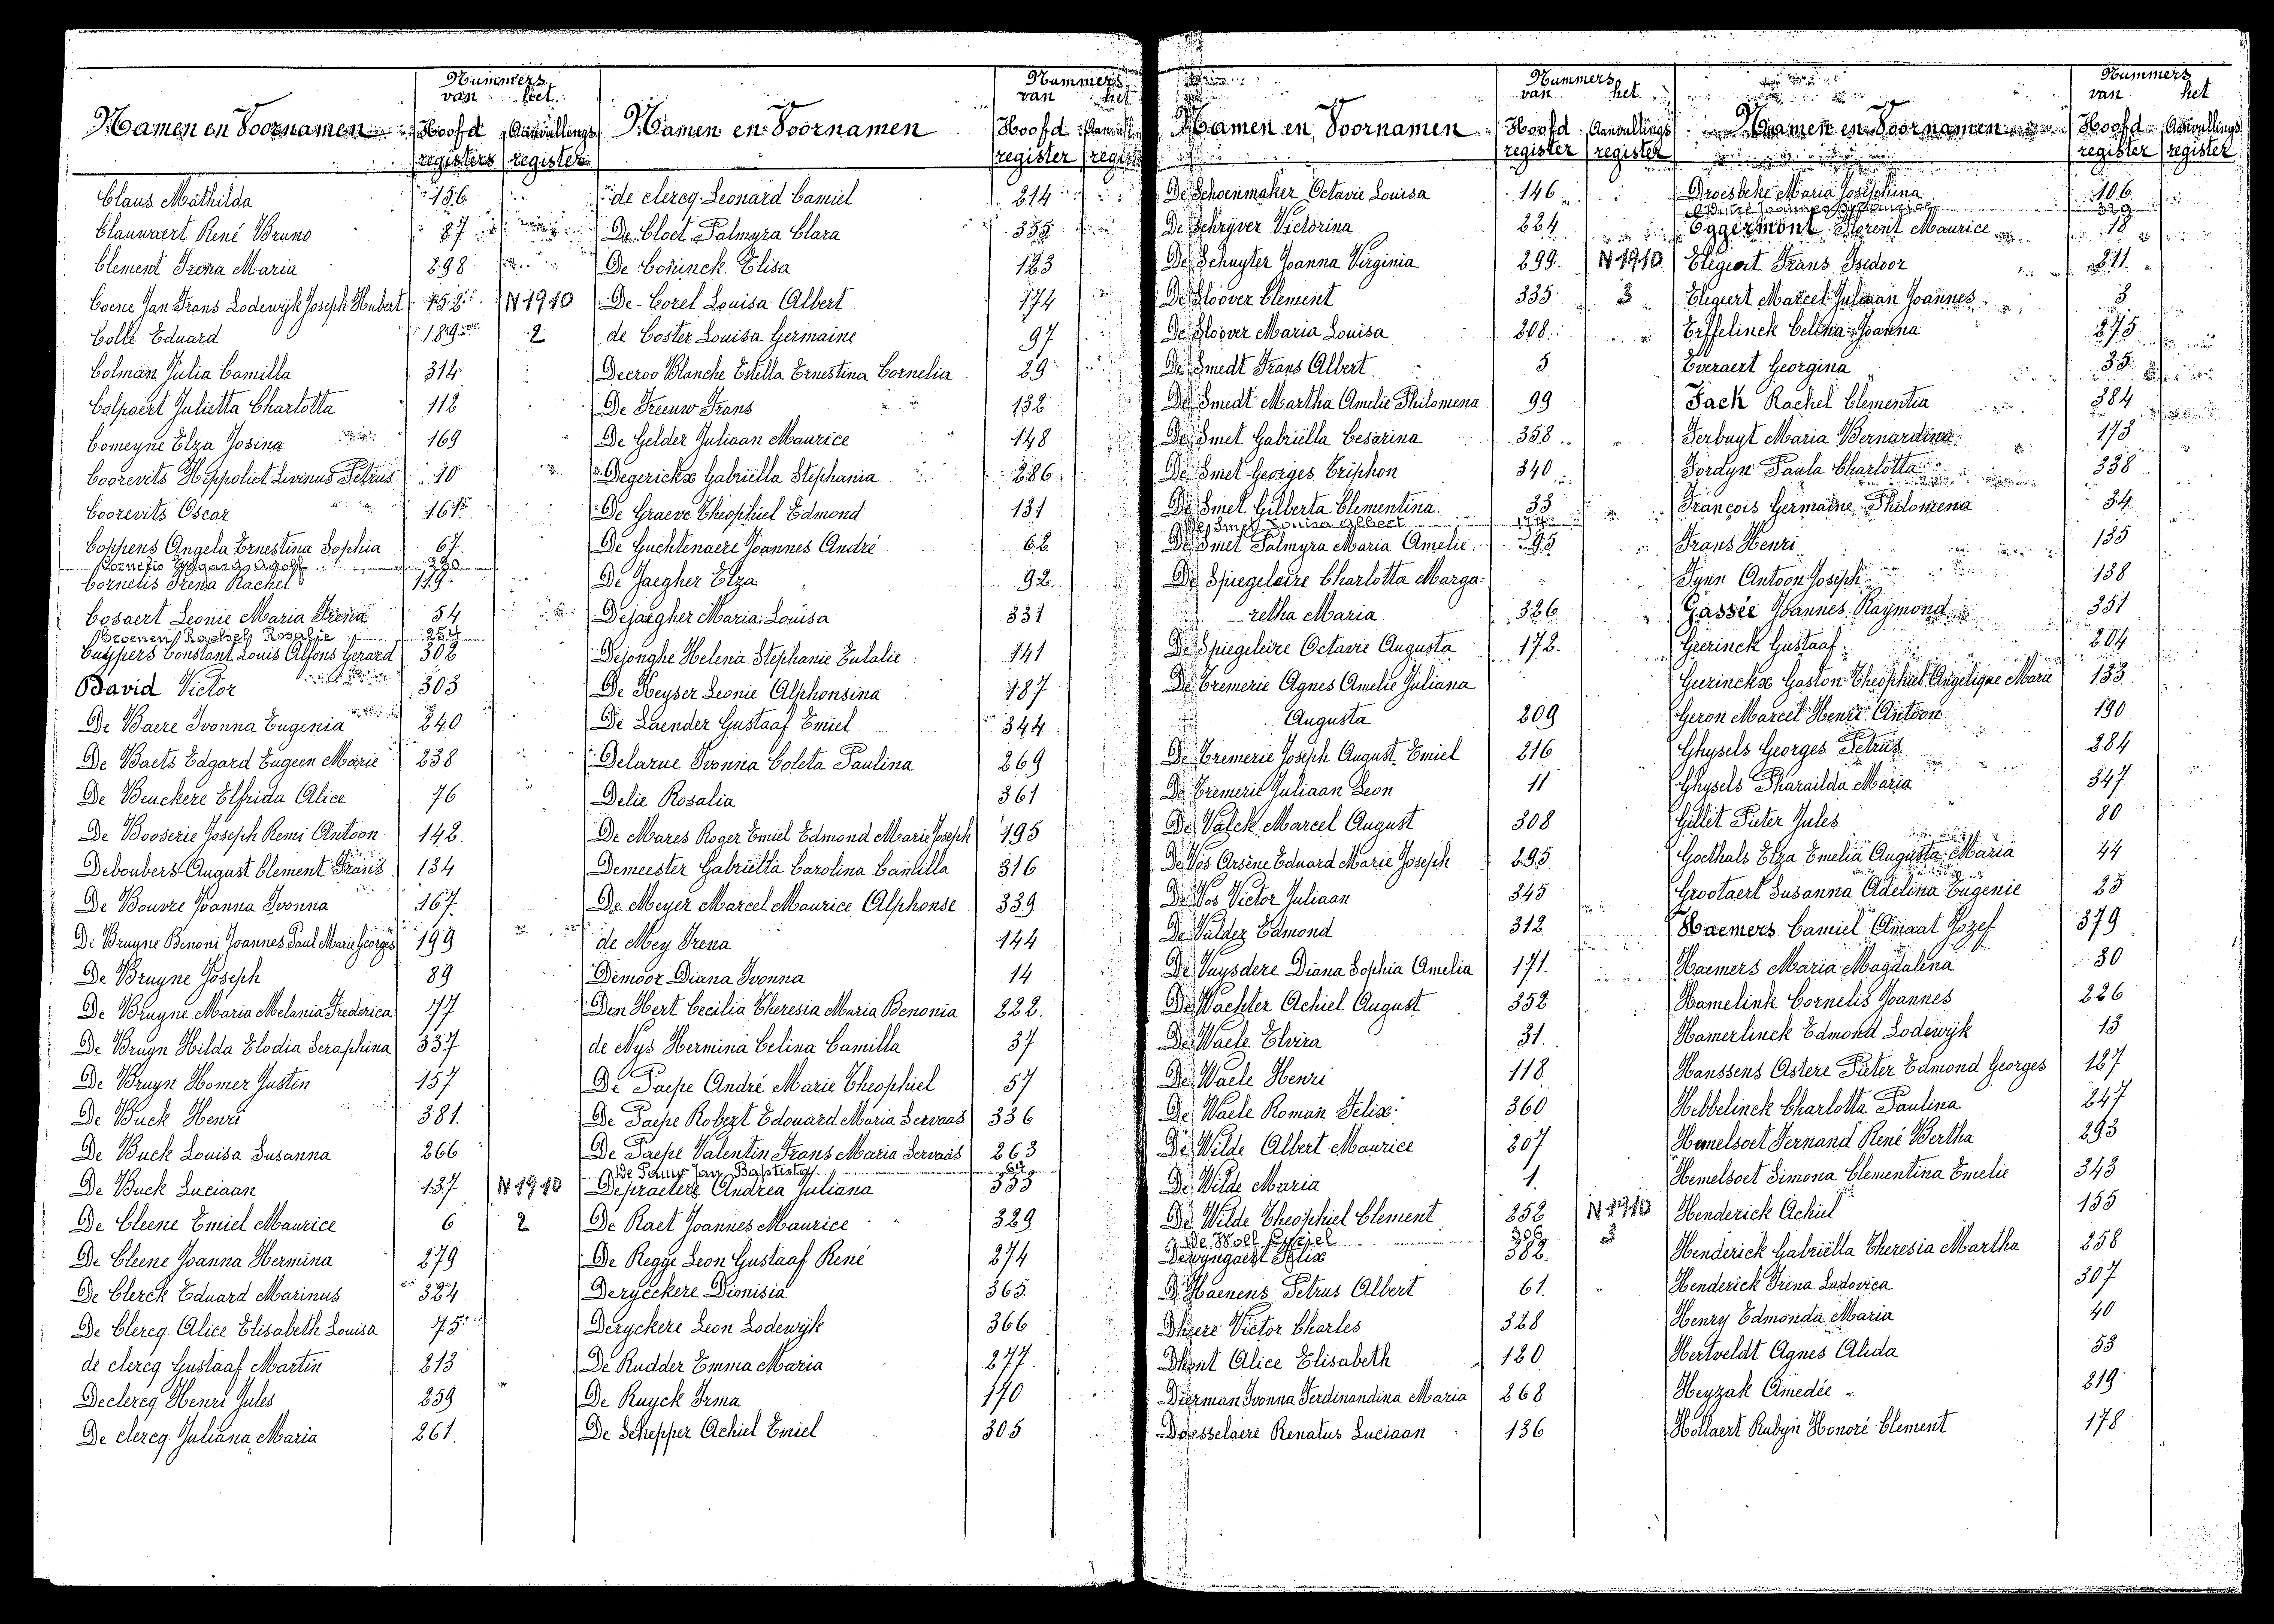 Nummers
van het
Namen en Voornamen Hoofd Aanvullings
registers register
Claus Mathilda 156
Clauwaert René Bruno 87
Clement Irena Maria 298
Coene Jan Frans Lodewijk Joseph Hubert 152 N 1910
Colle Eduard 189 2
Colman Julia Camilla 314
Colpaert Julietta Charlotta 112
Comeyne Elza Josina 169
Coorevits Hippoliet Livinus Petrus 10
Coorevits Oscar 161
Coppens Angela Ernestina Sophia 67
Cornelis Edgard Adolf 320
Cornelis Irena Rachel 119
Cosaert Leonie Maria Irena 54
Croenen Rachel Rosalie 254
Cuypers Constant Louis Alfons Gerard 302
David Victor 303
De Baere Ivonna Eugenia 240
De Baets Edgard Eugeen Marie 238
De Beuckere Elfrida Alice 76
De Booserie Joseph Remi Antoon 142
Deboubers August Clement Frans 134
De Bouvre Joanna Ivonna 167
De Bruyne Benoni Joannes Paul Marie Georges 199
De Bruyne Joseph 89
De Bruyne Maria Melania Frederica 77
De Bruyn Hilda Elodia Seraphina 337
De Bruyn Homer Justin 157
De Buck Henri 381
De Buck Louisa Susanna 266
De Buck Luciaan 137 N 1910
De Cleene Emiel Maurice 6 2
De Cleene Joanna Hermina 279
De Clerck Eduard Marinus 324
De Clercq Alice Elisabeth Louisa 75
de clercq Gustaaf Martin 213
Declercq Henri Jules 259
De clercq Juliana Maria 261
Nummers
van het
Namen en Voornamen Hoofd
register
de clercq Leonard Camiel 214
De Cloet Palmyra Clara 355
De Coninck Elisa 123
De Corel Louisa Albert 174
de Coster Louisa Germaine 97
Decroo Blanche Estella Ernestina Cornelia 29
De Freeuw Frans 132
De Gelder Juliaan Maurice 148
Degerickx Gabriëlla Stephania 286
De Graeve Theophiel Edmond 131
De Guchtenaere Joannes André 62
De Jaegher Elza 92
Dejaegher Maria Louisa 331
Dejonghe Helena Stephanie Eulalie 141
De Keyser Leonie Alphonsina 187
De Laender Gustaaf Emiel 344
Delarue Ivonna Coleta Paulina 269
Delie Rosalia 361
De Mares Roger Emiel Edmond Marie Joseph 195
Demeester Gabriëlla Carolina Camilla 316
De Meyer Marcel Maurice Alphonse 339
de Mey Irena 144
Demoor Diana Ivonna 14
Den Hert Cecilia Theresia Maria Benonia 222
de Nys Hermina Celina Camilla 37
De Paepe André Marie Theophiel 57
De Paepe Robert Edouard Maria Servaas 336
De Paepe Valentin Frans Maria Servaas 263
De Pauw Jan Baptista 64
Depraetere Andrea Juliana 353
De Raet Joannes Maurice 329
De Regge Leon Gustaaf René 274
Deryeckere Dionisia 365
Deryckere Leon Lodewijk 366
De Rudder Emma Maria 277
De Ruyck Irma 170
De Schepper Achiel Emiel 305
Nummers
van het
Namen en Voornamen Hoofd Aanvullings
register register
De Schoenmaker Octavie Louisa 146
De Schryver Victorina 224
De Schuyter Joanna Virginia 299 N 1910
De Sloover Clement 335 3
De Sloover Maria Louisa 208
De Smedt Frans Albert 5
De Smedt Martha Amelie Philomena 99
De Smet Gabriëlla Cesarina 358
De Smet Georges Triphon 340
De Smet Gilberta Clementina 33
De Smet Louisa Albert 174
De Smet Palmyra Maria Amelie 95
De Spiegeleire Charlotta Marga-
retha Maria 326
De Spiegeleire Octavie Augusta 172
De Tremerie Agnes Amelie Juliana
Augusta 209
De Tremerie Joseph August Emiel 216
De Tremerie Juliaan Leon 11
De Valck Marcel August 308
De Vos Arsène Eduard Marie Joseph 295
De Vos Victor Juliaan 345
De Vulder Edmond 312
De Vuysdere Diana Sophia Amelia 171
De Wachter Achiel August 352
De Waele Elvira 31
De Waele Henri 118
De Waele Roman Felix 360
De Wilde Albert Maurice 207
De Wilde Maria 1
De Wilde Theophiel Clement 252 N 1910
De Wolf Cyriel 306 3
Dewyngaert Felix 382
D'Haenens Petrus Albert 61
Dheere Victor Charles 328
Dhont Alice Elisabeth 120
Dierman Ivonna Ferdinandina Maria 268
Doesselaere Renatus Luciaan 136
Nummers
van het
Namen en Voornamen Hoofd Aanvullings
register register
Droesbeke Maria Josephina 106
329
Eggermont Florent Maurice 18
Elegeert Frans Isedoor 211
Elegeert Marcel Juliaan Joannes 3
Erffelinck Celina Joanna 275
Everaert Georgina 35
Fack Rachel Clementia 384
Ferbuyt Maria Bernardina 173
Fordyn Paula Charlotta 338
François Germaine Philomena 34
Frans Henri 135
Fynn Antoon Joseph 138
Gassée Joannes Raymond 351
Geerinck Gustaaf 204
Geerinckx Gaston Theophiel Angelique Marie 133
Geron Marcel Henri Antoon 190
Ghysels Georges Petrus 284
Ghysels Pharaïlda Maria 347
Gillet Pieter Jules 80
Goethals Elza Emelia Augusta Maria 44
Grootaert Susanna Adelina Eugenie 25
Haemers Camiel Amaat Jozef 379
Haemers Maria Magdalena 30
Hamelink Cornelis Joannes 226
Hamerlinck Edmond Lodewijk 13
Hanssens Astere Pieter Edmond Georges 127
Hebbelinck Charlotta Paulina 247
Hemelsoet Fernand René Bertha 293
Hemelsoet Simona Clementina Emelie 343
Henderick Achiel 155
Henderick Gabriëlla Theresia Martha 258
Henderick Irena Ludovica 307
Henry Edmonda Maria 40
Hertveldt Agnes Alida 53
Heyzak Amedée 219
Hollaert Rubyn Honoré Clement 178